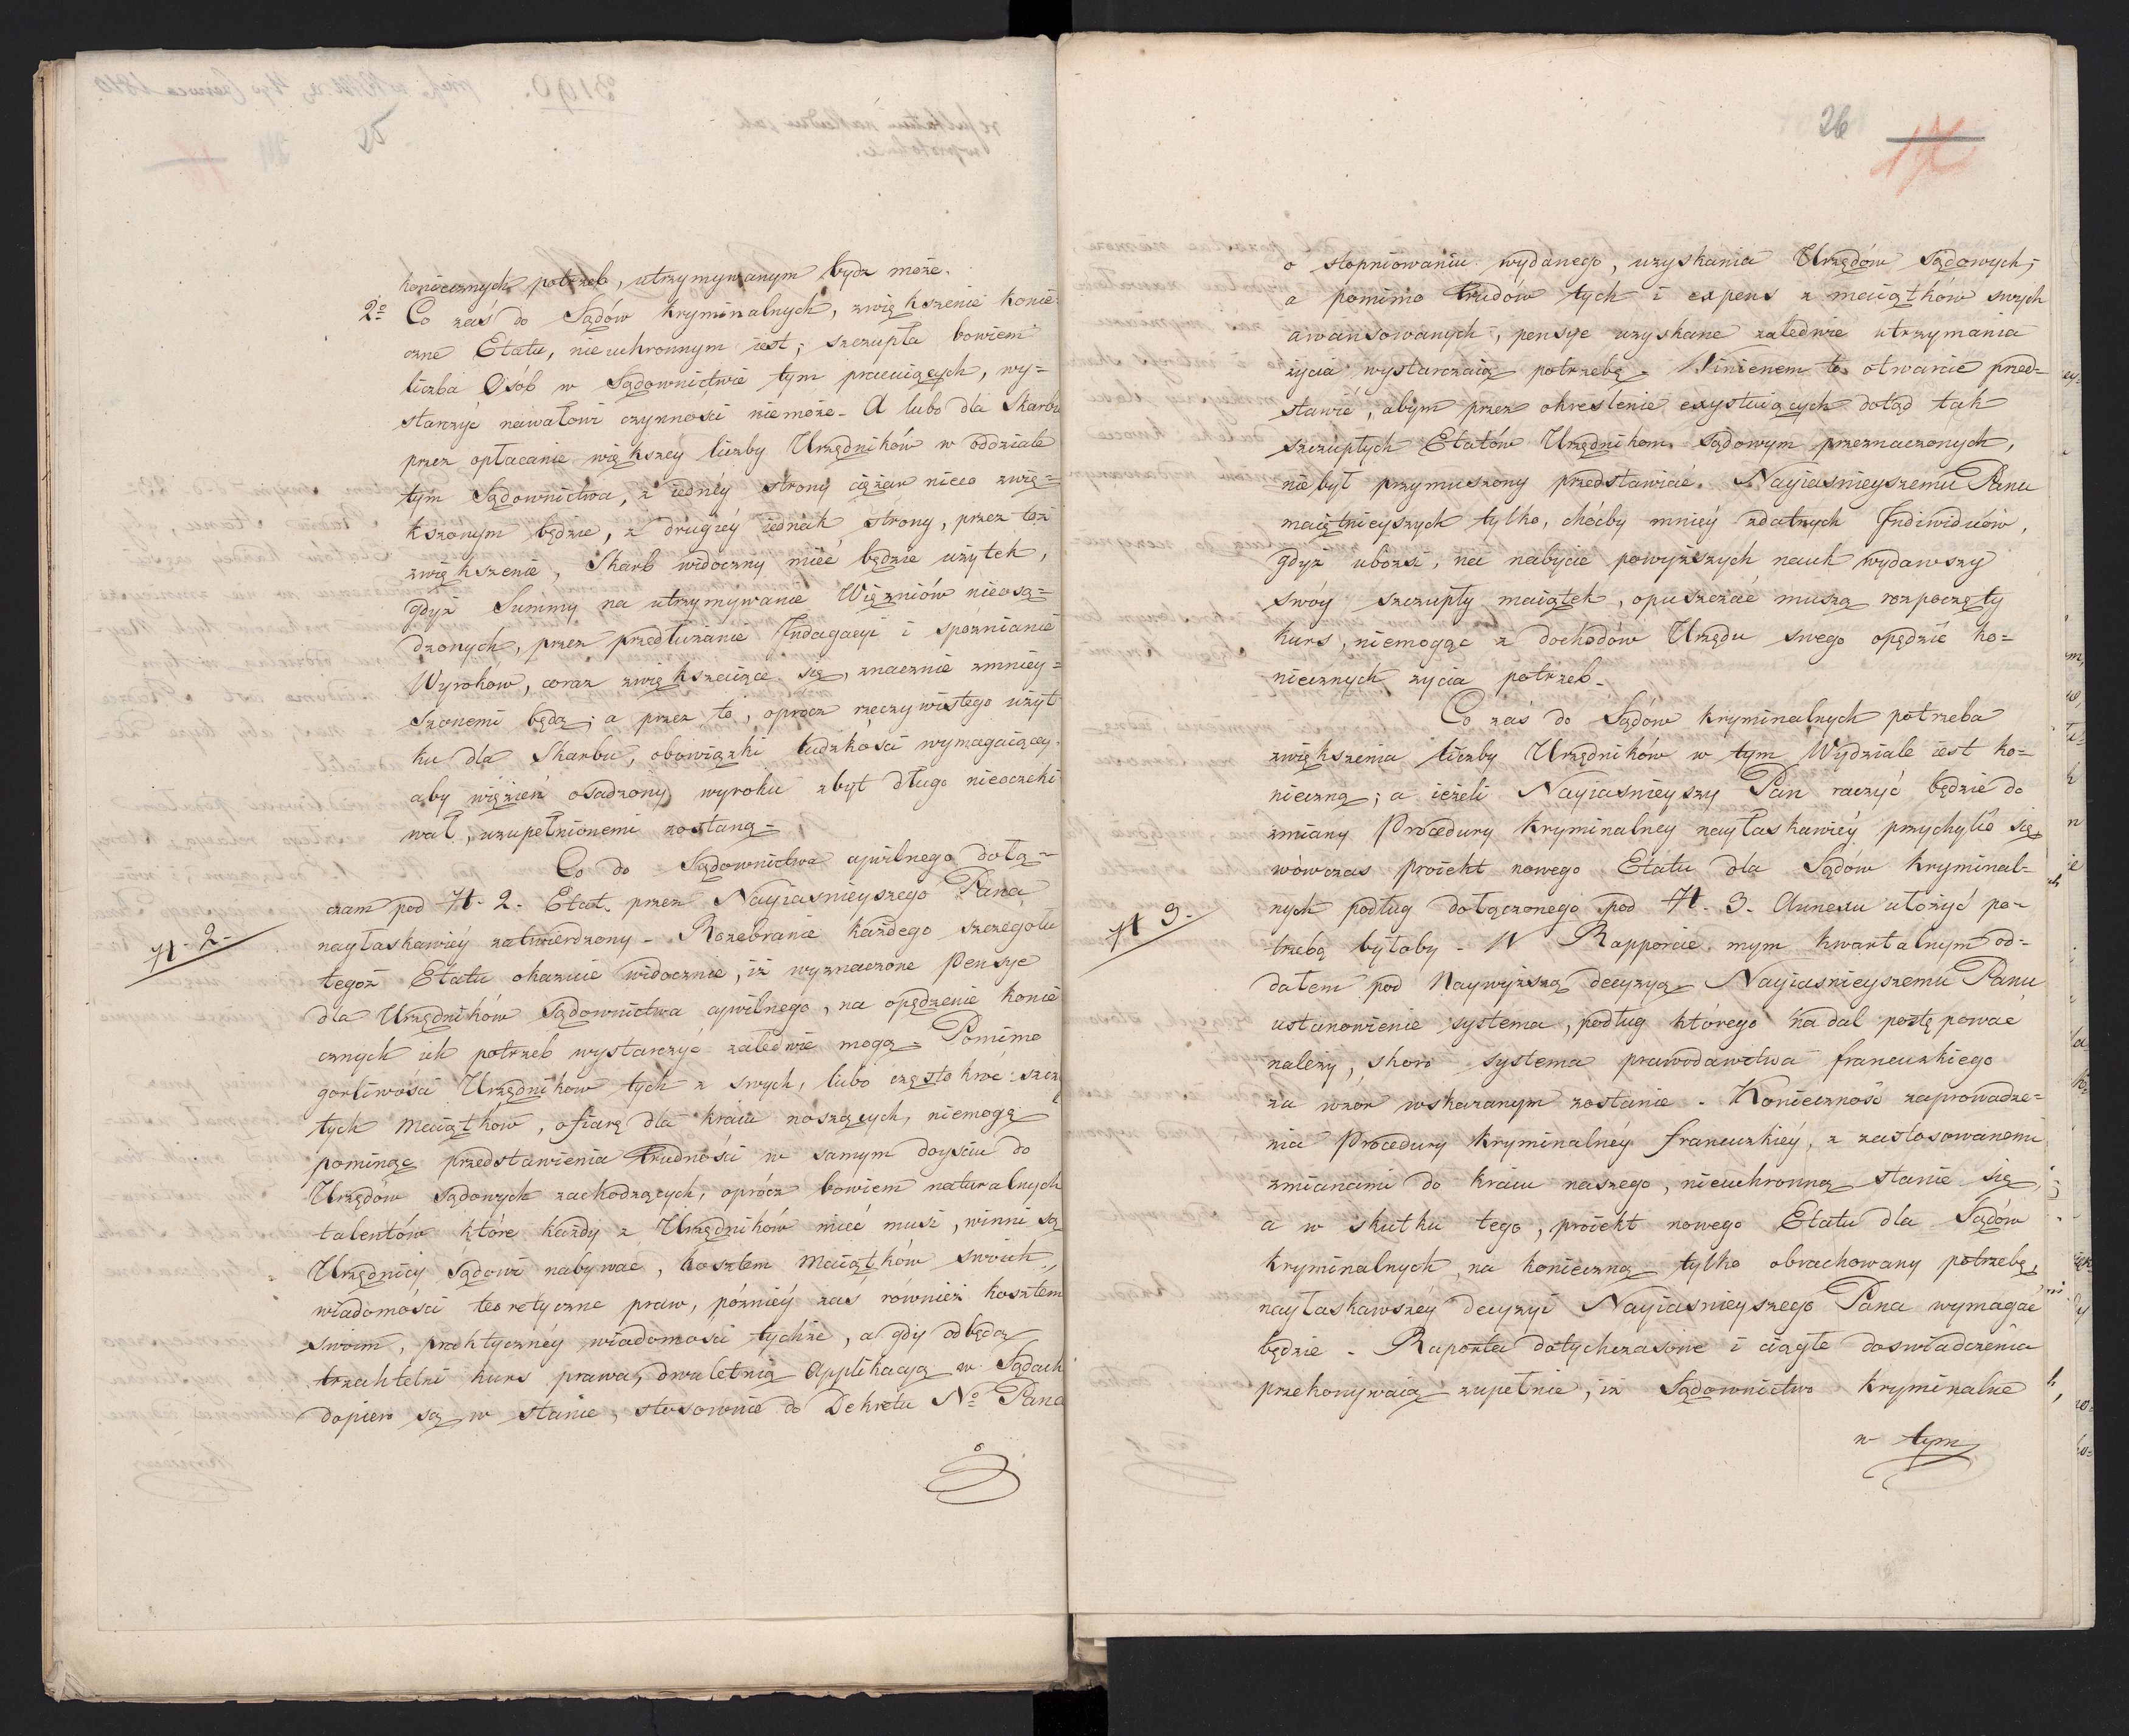 koniecznych potrzeb, utrzymywanym bydz może.
2o Co zaś do Sądów kryminalnych, zwiększenie konie-
czne Etatu, nieuchronnym iest; szczupła bowiem
liczba Osób w Sądownictwie tym pracuiących, wy=
starczyć nawałowi czynności niemoże - A lubo dla Skarbu
przez opłacanie większey liczby Urzędników w oddziale
tym Sądownictwa, z iedney strony ciężar nieco zwię=
kszonym będzie, z drugiéy iednak strony, przez toż
zwiększenie, Skarb widoczny mieć będzie użytek,
gdyż Summy na utrzymywanie Więzniów nieosą=
dzonych, przez przedłużanie Indagacyi i spoznianie
Wyroków, coraz zwiększaiące się, znacznie zmniey=
szonemi będą; a przez to, oprócz rzeczywistego użyt
ku dla Skarbu, obowiązki ludzkości wymagaiącey
aby więzień osadzony wyroku zbyt długo nieoczeki
wał, uzupełnionemi zostaną -
Co do Sądownictwa cywilnego dołą=
czam pod N. 2. Etat przez Nayiasnieyszego Pana
N. 2.
nayłaskawiéy zatwierdzony - Rozebranie każdego szczegółu
tegoż Etatu okazuie widocznie, iż wyznaczone pensye
dla Urzędników Sądownictwa cywilnego, na opędzenie konie
cznych ich potrzeb wystarczyć zaledwie mogą - Pomimo
gorliwości Urzędników tych z swych, lubo częstokroć szczu
tych maiątków, ofiarę dla kraiu noszących, niemogę
pominąć przedstawienia trudności w samym doyściu do
Urzędów Sądowych zachodzących, oprócz bowiem naturalnych
talentów które każdy z Urzędników mieć musi, winni są
Urzędnicy Sądowi nabywać, kosztem maiątków swoich,
wiadomości teoretyczne praw, pózniéy zaś również kosztem
swoim, praktycznéy wiadomości tychże, a gdy odbędą
trzechletni kurs prawa, dwuletnią Applikacyą w Sądach
dopiero są w stanie, stosownie do Dekretu No Pana
26
o stopniowaniu wydanego, uzyskania Urzędów Sądowych;
a pomimo trudów tych i expens z maiątków swych
awansowanych, pensye uzyskane zaledwie utrzymania
życia wystarczaią potrzebę. Winienem to otwarcie przed=
stawić, abym przez określenie exystuiących dotąd tak
szczupłych Etatów Urzędnikom Sądowym przeznaczonych,
nie był przymuszony przedstawiać Nayiasnieyszemu Panu
maiętnieyszych tylko, choćby mniéy zdatnych Indiwiduów,
gdyż ubożsi, na nabycie powyższych nauk wydawszy
swóy szczupły maiątek, opuszczać muszą rozpoczęty
kurs, niemogąc z dochodów Urzędu swego opędzić ko=
niecznych życia potrzeb -
Co zaś do Sądów kryminalnych potrzeba
zwiększenia liczby Urzędników w tym Wydziale iest ko=
nieczną; a ieżeli Nayiasnieyszy Pan raczyć będzie do
zmiany Procedury kryminalney nayłaskawiéy przychylić się
wówczas proiekt nowego Etatu dla Sądów kryminal=
nych podług dołączonego pod N. 3. Annexu ułożyć po=
N 3.
trzebą byłoby - W Rapporcie mym kwartalnym od=
dałem pod Naywyższą decyzyą Nayiasnieyszemu Panu
ustanowienie systema, podług którego nadal postępować
należy, skoro systema prawodawctwa francuzkiego
za wzór wskazanym zostanie - Konieczność zaprowadze=
nia Procedury kryminalnéy francuzkiéy, z zastosowanemi
zmianami do kraiu naszego, nieuchronną stanie się,
a w skutku tego, proiekt nowego Etatu dla Sądów
kryminalnych, na konieczną tylko obrachowany potrzebę,
nayłaskawszéy decyzyi Nayiasnieyszego Pana wymagać
będzie - Raporta dotychczasowe i ciągłe doswiadczenia
przekonywaią zupełnie, iż Sądownictwo kryminalne
w tym